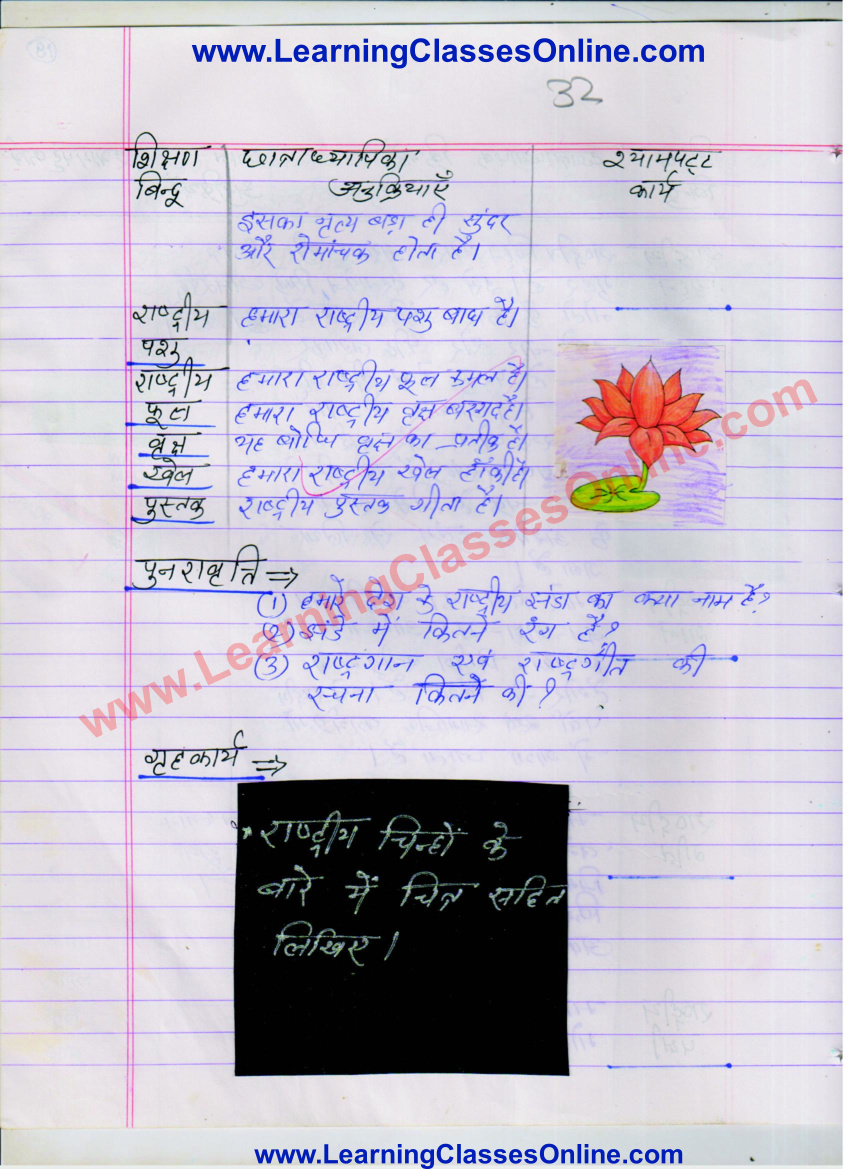 www.LearningClassesOnline.com
32
शिक्षण छात्राध्यापिका श्यामपट्ट
बिन्दू अनुक्रियाएँ कार्य
इसका नृत्य बड़ा ही सुंदर
और रोमांचक होता है।
राष्ट्रीय हमारा राष्ट्रीय पशु बाघ है।
पशु
राष्ट्रीय हमारा राष्ट्रीय फूल कमल है।
फूल हमारा राष्ट्रीय वृक्ष बरगद है।
वृक्ष यह बोधि वृक्ष का प्रतीक है।
खेल हमारा राष्ट्रीय खेल हॉकी है।
पुस्तक राष्ट्रीय पुस्तक गीता है।
पुनरावृत्ति ⇒
(1) हमारे देश के राष्ट्रीय झंडा का क्या नाम है?
(2) झंडे में कितने रंग है?
(3) राष्ट्रगान एवं राष्ट्रगीत की
रचना कितने की?
www.LearningClassesOnline.com
गृहकार्य ⇒
* राष्ट्रीय चिन्हों के
बारे में चित्र सहित
लिखिए।
www.LearningClassesOnline.com